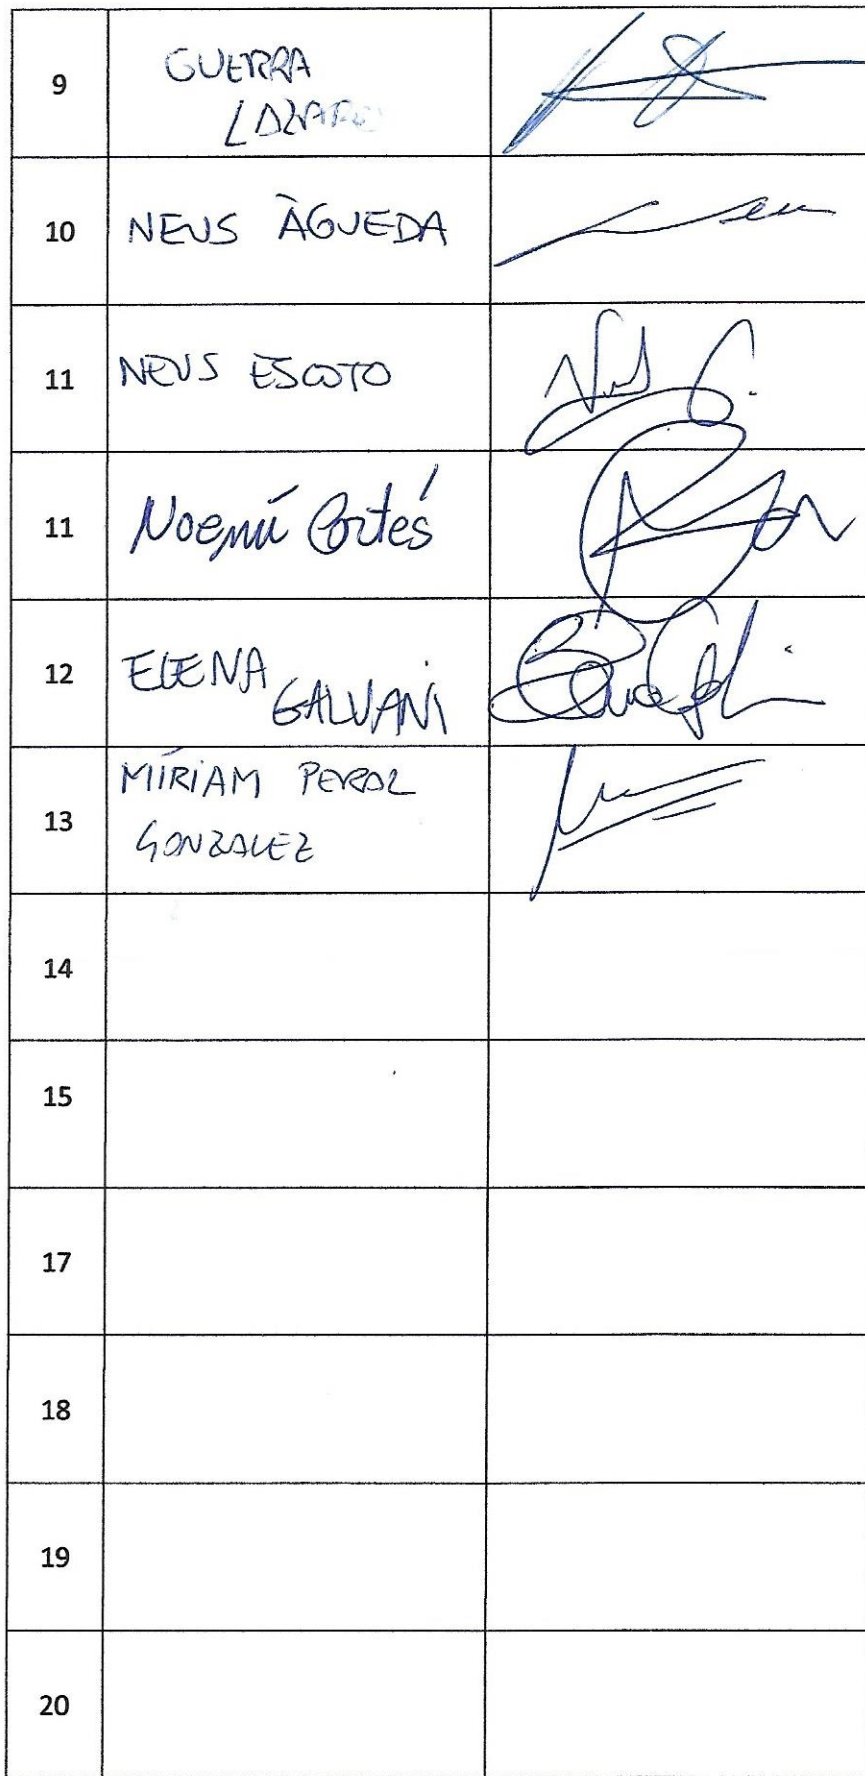 9
GUERRA
LAZARO
10 NEUS ÀGUEDA
11 NEUS ESCOTO
11 Noemí Cortés
12 ELENA
GALVANI
13
MÍRIAM PERAL
GONZALEZ
14
15
17
18
19
20